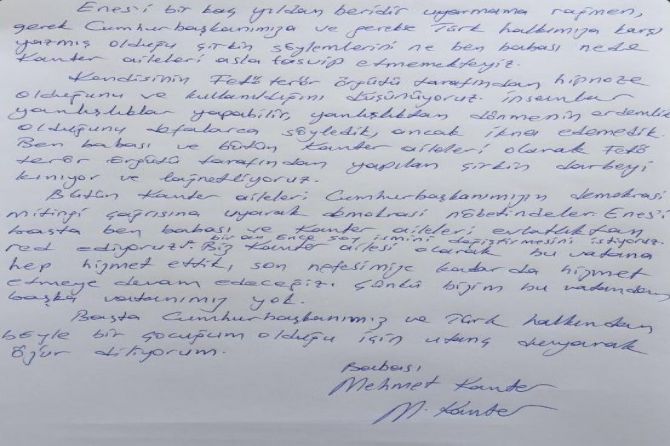 Enes'i bir kaç yıldan beridir uyarmama rağmen,
gerek Cumhurbaşkanımıza ve gerekse Türk halkımıza karşı
yazmış olduğu çirkin söylemlerini ne ben babası nede
Kanter aileleri asla tasvip etmemekteyiz.
Kendisinin Fetö terör örgütü tarafından hipnoze
olduğunu ve kullanıldığını düşünüyoruz. insanlar
yanlışlıklar yapabilir, yanlışlıktan dönmenin erdemlik
olduğunu defalarca söyledik, ancak ikna edemedik
Ben babası ve bütün Kanter aileleri olarak Fetö
terör örgütü tarafından yapılan çirkin darbeyi
kınıyor ve lağnetliyoruz.
Bütün Kanter aileleri Cumhurbaşkanımızın demokrasi
mitingi çağrısına uyarak demokrasi nöbetindeler. Enes'i
başta ben babası ve Kanter aileleri evlatlıktan
bir an önce soy ismini değiştirmesini istiyoruz.
red ediyoruz. Biz Kanter ailesi olarak bu vatana
hep hizmet ettik, son nefesimize kadar da hizmet
etmeye devam edeceğiz. Çünkü bizim bu vatandan
başka vatanımız yok.
Başta Cumhurbaşkanımız ve Türk halkından
böyle bir çocuğum olduğu için utanç duyarak
özür diliyorum.
Babası
Mehmet Kanter
M. Kanter